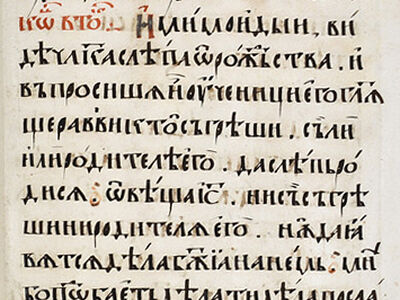 мимоидыи, ви
дѣ чл҃ка слѣпа ѿ рожⷣьства. и
въпросишѧ и оученици его гл҃ѧ
ще равви кто съгрѣши. сь ли
или родителѣ его. да слѣпь ро
дисѧ ѿвѣща іс҃. ни сь съгрѣ
ши ни родителѧ его. нѫ да ꙗ
вѧтсѧ дѣла бж҃їа на немь. мнѣ
бо пѡⷣбаеть дѣлати дѣла посла